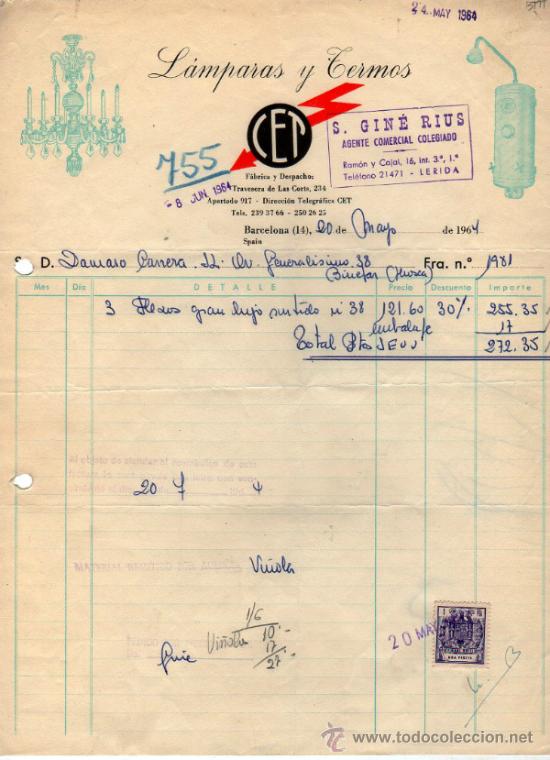 24 MAY 1964
Lámparas y Termos
CET
755
S. GINÉ RIUS
AGENTE COMERCIAL COLEGIADO
Ramón y Cajal, 16, int. 3.º, 1.ª
Teléfono 21471 - LERIDA
-8 JUN. 1964
Fábrica y Despacho:
Travesera de Las Corts, 234
Apartado 917 - Dirección Telegráfica CET
Tels. 239 37 66 - 250 26 25
Barcelona (14), 20 de Mayo de 1964
Spain
D. Damaso Carrera. Av. Generalísimo 38 Fra. n.º 1981
Binefar (Huesca)
Mes Día DETALLE Precio Descuento Importe
3 gran lujo surtido nº 38 121.60 30% 255.35
embalaje 17
Total Pts 272.35
20 7 4
Viñola
1/6
Viñola 10.-
17
27.-
20 MAY
1 PTA
UNA PESETA
www.todocoleccion.net